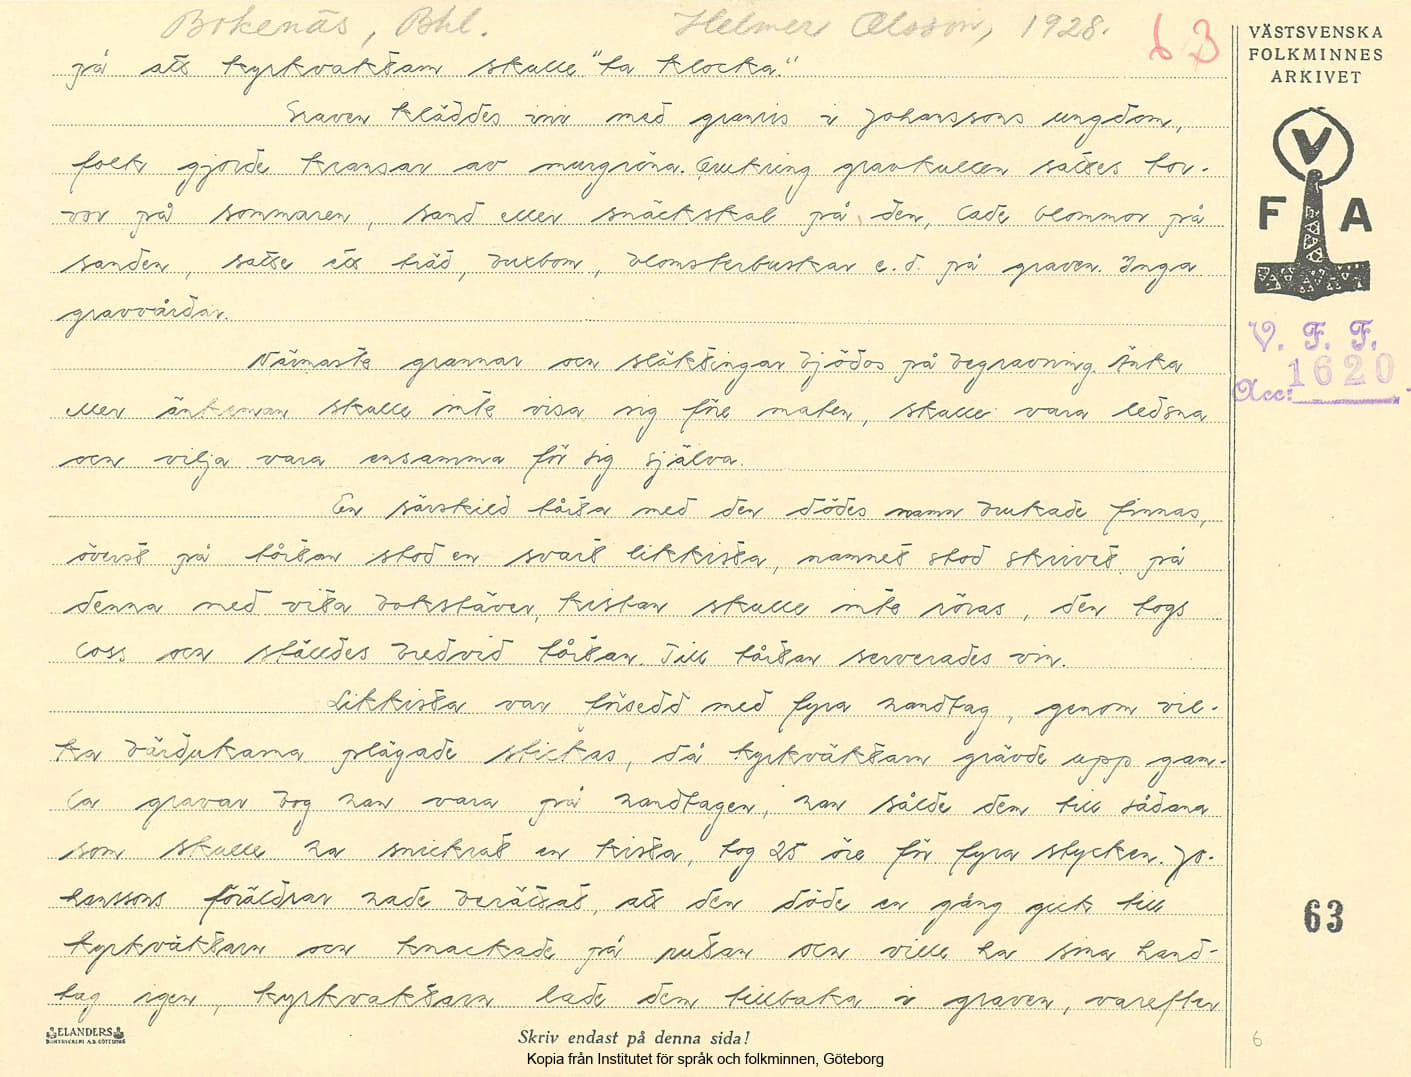 Bokenäs, Bhl. Helmer Olsson, 1928. 63
VÄSTSVENSKA
FOLKMINNES
ARKIVET
V
F A
V. F. F.
Acc: 1620
på att kyrkvaktarn skulle "ta klocka."
Graven kläddes inv med granris i Johanssons ungdom,
folk gjorde kransar av murgröna. Omkring gravkullen sattes tor-
vor på sommaren, sand eller snäckskal på den, lade blommor på
sanden, satte ett träd, buxbom, blomsterbuskar e.d. på graven. Inga
gravvårdar.
Närmaste grannar och släktingar bjödos på begravning. Änka
eller änkeman skulle inte visa sig före maten, skulle vara ledsna
och vilja vara ensamma för sig själva.
En särskild tårta med den dödes namn brukade finnas,
överst på tårtan stod en svart likkista, namnet stod skrivet på
denna med vita bokstäver, kistan skulle inte röras, den togs
loss och ställdes bredvid tårtan. Till tårtan serverades vin.
Likkista var försedd med fyra handtag, genom vil-
ka bårdukarna plägade stickas, då kyrkväktarn grävde upp gam-
la gravar tog han vara på handtagen, han sålde dem till sådana
som skulle ha snickrat en kista, tog 25 öre för fyra stycken. Jo-
hanssons föräldrar hade berättat, att den döde en gång gick till
kyrkväktarn och knackade på rutan och ville ha sina hand-
tag igen, kyrkvaktarn lade dem tillbaka i graven, varefter
63
ELANDERS
BOKTRYCKERI A.B. GÖTEBORG
Skriv endast på denna sida!
6
Kopia från Institutet för språk och folkminnen, Göteborg